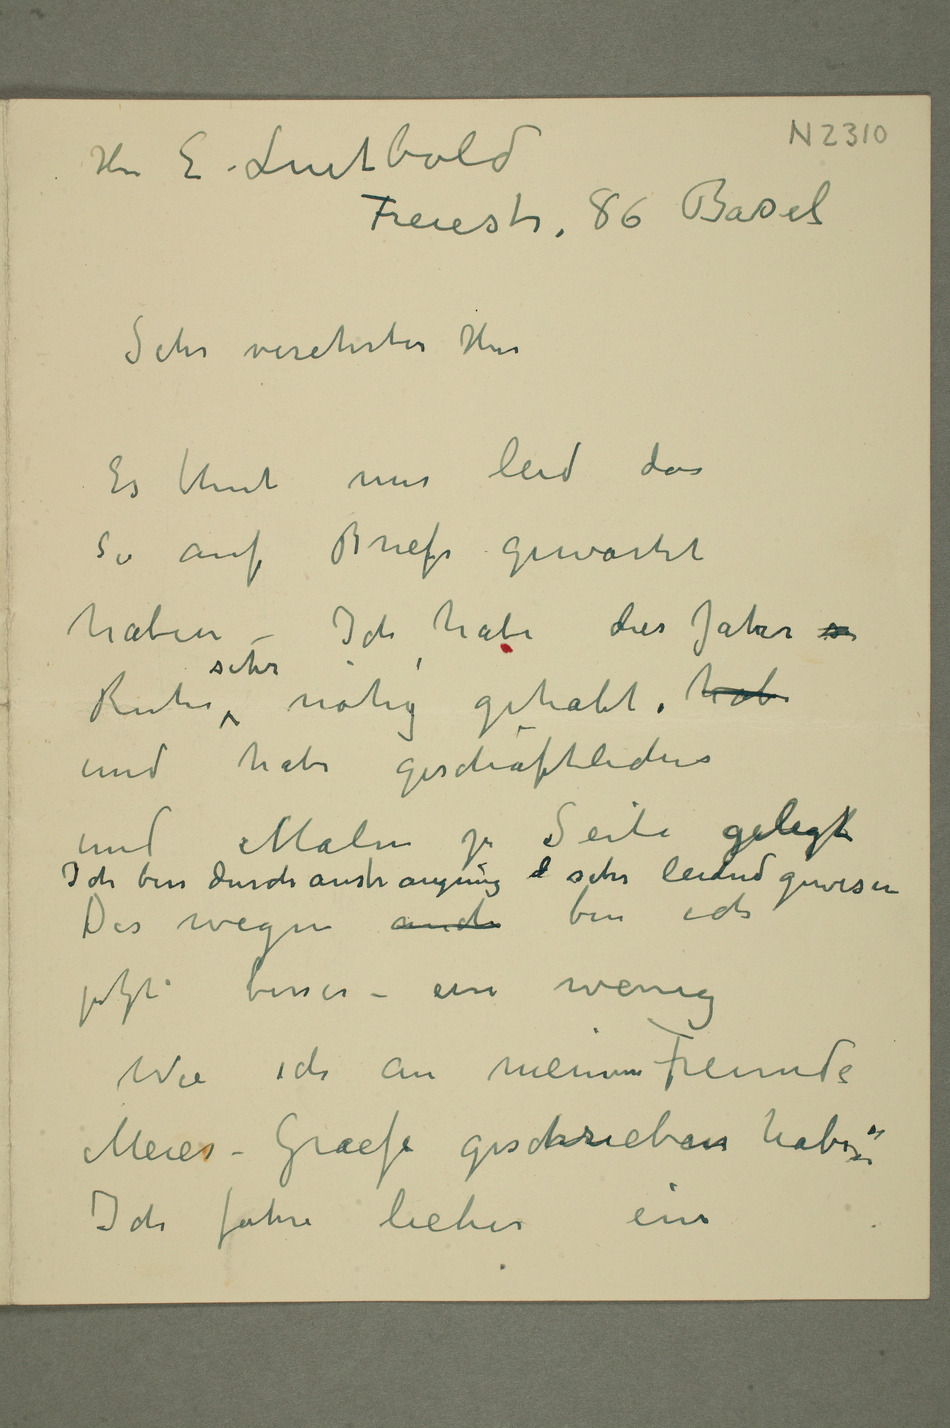 N 2310
Herr E. Luitbold
Freiestr. 86 Basel
Sehr verehrter Herr
Es thut mir leid das
Si auf Briefe gewartet
haben – Ich habe dies Jahr
sehr
Ruhe nötig gehabt. hab
und habe geschäftliches
und Malen zu Seite gelegt
Ich bin durch anstrangung sehr leidend gewesen
Des wegen auch bin ich
jetzt besser – ein wenig
Wie ich an meinem Freunde
Meier-Graefe geschrieben habe:"
Ich fahre lieber ein